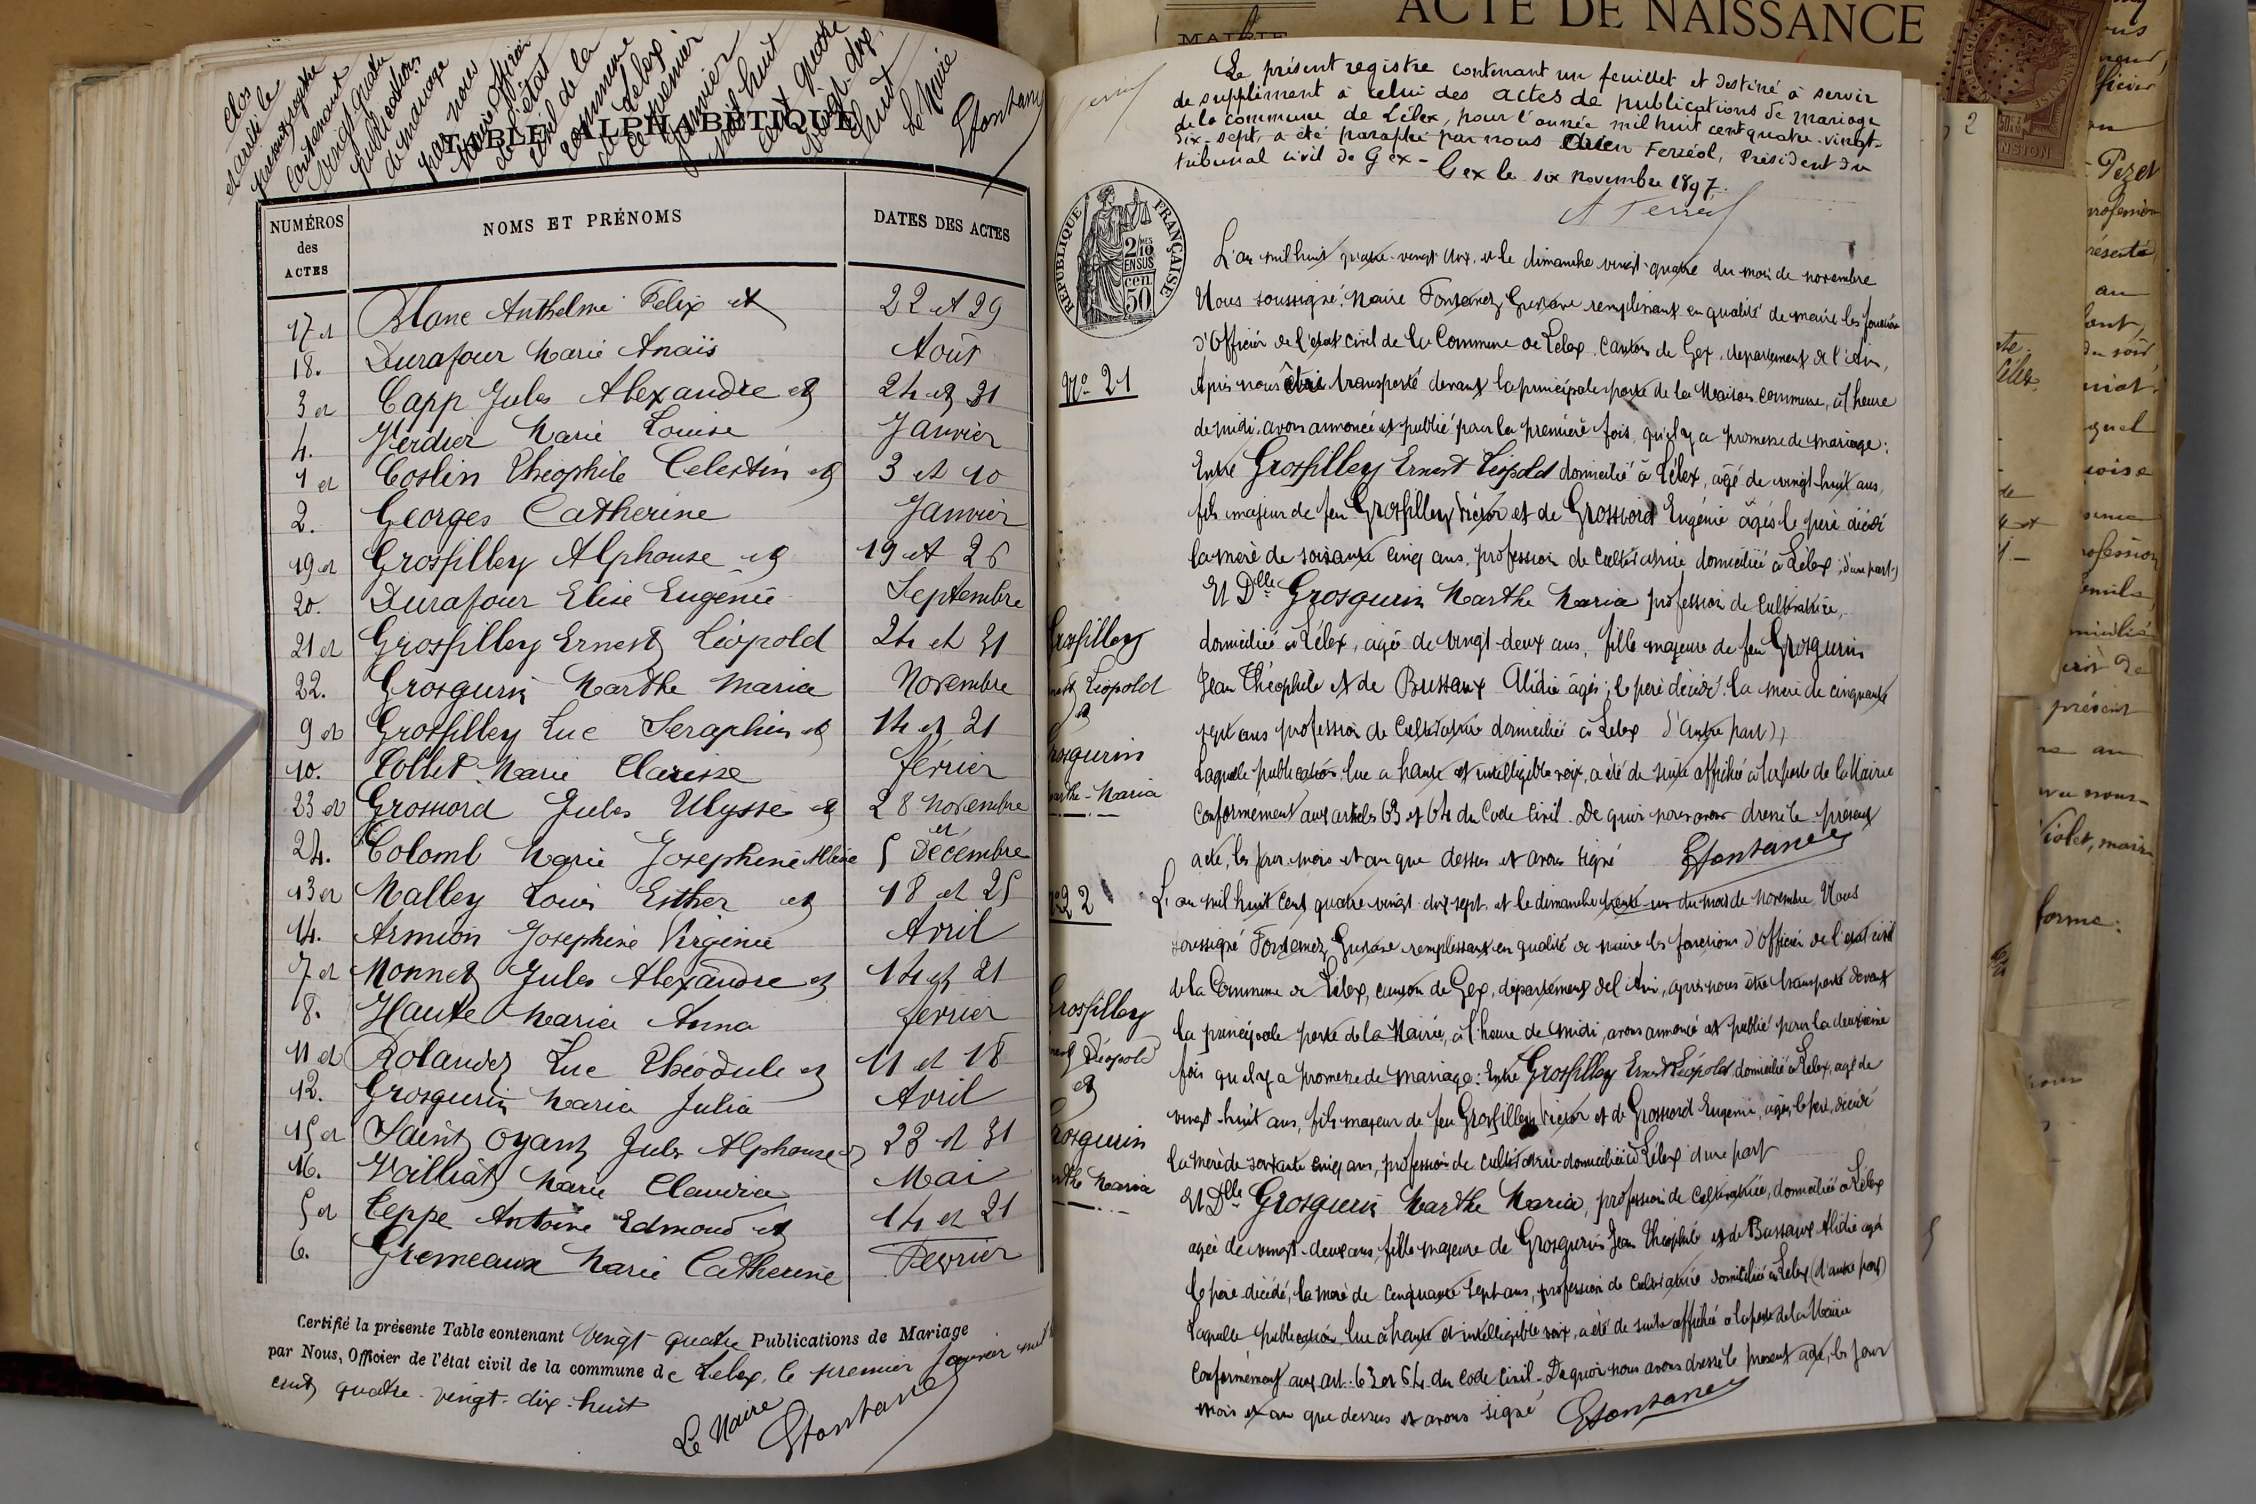 Clos
et arrêté le
présent registre
contenant
vingt quatre
publications
de mariage
par nous
Maire Officier
de l'état
civil de la
commune
de Lélex
le premier
Janvier
mil huit
cent quatre
vingt-dix
huit
Le Maire
Gfontanez
TABLE ALPHABÉTIQUE
NUMÉROS des ACTES
NOMS ET PRÉNOMS
DATES DES ACTES
17 et Blanc Anthelme Felix et 22 et 29
18. Durafour Marie Anaïs Août
3 et Capp Jules Alexandre et 24 et 31
4. Verdier Marie Louise Janvier
1 et Coslin Théophile Celestin et 3 et 10
2. Georges Catherine Janvier
19 et Grosfilley Alphonse et 19 et 26
20. Durafour Elise Eugénie Septembre
21 et Grosfilley Ernest Léopold 24 et 31
22. Grosgurin Marthe Maria Novembre
9 et Grosfilley Luc Seraphin et 14 et 21
10. Collet Marie Clarisse février
23 et Grossiord Jules Ulysse et 28 Novembre
et
24. Colomb Marie Josephine Albine 5 Décembre
13 et Malley Louis Esther et 18 et 25
14. Armion Josephine Virginie Avril
7 et Monnet Jules Alexandre et 14 et 21
8. Haute Maria Anna février
11 et Rolandez Luc Théodule et 11 et 18
12. Grosgurin Maria Julia Avril
15 et Saint Oyant Jules Alphonse et 23 et 31
16. Vailliat Marie Claudia Mai
5 et Teppe Antoine Edmond et 14 et 21
6. Gremeaux Marie Catherine Fevrier
Certifié la présente Table contenant vingt quatre Publications de Mariage
par Nous, Officier de l'état civil de la commune de Lelex, le premier Janvier mil
cent quatre-vingt-dix-huit
Le Maire
Gfontanez
MAIRIE
ACTE DE NAISSANCE
Le présent registre contenant un feuillet et destiné à servir
de supplément à celui des actes de publications de mariage
de la commune de Lélex, pour l'année mil huit cent quatre-vingt-
dix-sept, a été paraphé par nous Ferréol, Président du
tribunal civil de Gex - Gex le six novembre 1897.
RÉPUBLIQUE FRANÇAISE
2/10 EN SUS
50 cen
L'an mil huit quatre-vingt dix, et le dimanche vingt-quatre du mois de novembre
Nous soussigné, Maire Fontanez Gustave remplissant en qualité de maire les fonctions
d'Officier de l'etat civil de la Commune de Lelex, canton de Gex, departement de l'Ain,
No 21
Après nous être transporté devant la principale porte de la Maison commune, à l'heure
de midi, avons annoncé et publié pour la première fois, qu'il y a promesse de mariage:
Entre Grosfilley Ernest Léopold domicilié à Lélex, agé de vingt-huit ans,
fils majeur de feu Grosfilley Victor et de Grossiord Eugénie âgés le père décédé
la mère de soixante cinq ans, profession de cultivatrice domiciliée à Lélex, d'une part,
Et Dlle Grosgurin Marthe Maria profession de cultivatrice,
Grosfilley
Ernest Léopold
et
Grosgurin
Marthe-Maria
domiciliée à Lélex, agée de vingt-deux ans, fille majeure de feu Grosgurin
Jean Théophile et de Bussaux Alidie âgés; le père décédé, la mère de cinquante
sept ans profession de Cultivatrice domiciliée à Lelex d'autre part)
Laquelle publication lue a haute et intelligible voix, a été de suite affichée à la porte de la Mairie
conformement aux articles 63 et 64 du Code Civil. De quoi nous avons dressé le présent
acte, les jour mois et an que dessus et avons signé Gfontanez
No 22
L'an mil huit cent quatre vingt-dix sept, et le dimanche trente-un du mois de novembre Nous
soussigné Fontanez Gustave remplissant en qualité de maire les fonctions d'Officier de l'etat civil
de la Commune de Lélex, canton de Gex, departement de l'Ain, après nous être transporté devant
la principale porte de la Mairie, à l'heure de midi, avons annoncé et publié pour la deuxième
fois qu'il y a promesse de mariage: Entre Grosfilley Ernest Léopold, domicilié à Lélex, agé de
vingt-huit ans, fils majeur de feu Grosfilley Victor et de Grossiord Eugenie, agés, le père décédé
la mère de soixante cinq ans, profession de cultivatrice domiciliée à Lelex d'une part
Grosfilley
Ernest Léopold
et
Grosgurin
Marthe Maria
Et Dlle Grosgurin Marthe Maria, profession de Cultivatrice, domiciliée à Lélex
agée de vingt-deux ans, fille majeure de Grosgurin Jean Théophile et de Bussaux Alidie agés
le père décédé, la mère de cinquante sept ans, profession de cultivatrice domiciliée à Lelex (d'autre part)
Laquelle publication lue à haute et intelligible voix, a été de suite affichée à la porte de la Mairie
conformement aux art. 63 et 64 du code civil. De quoi nous avons dressé le present acte, les jour
mois et an que dessus et avons signé Gfontanez
2
Pezet
profession
an
présent
Violet, maire
forme: